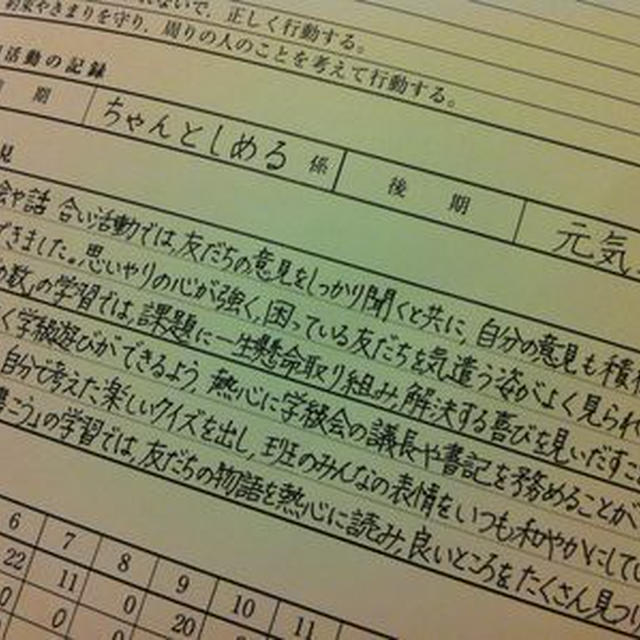 ないで，正しく行動する。
約束やきまりを守り，周りの人のことを考えて行動する。
活動の記録
期 ちゃんとしめる 係 後期 元気
見
会や話合い活動では、友だちの意見をしっかり聞くと共に、自分の意見も積極
できました。思いやりの心が強く、困っている友だちを気遣う姿がよく見られ
の数」の学習では、課題に一生懸命取り組み、解決する喜びを見いだすこ
く学級遊びができるよう、熱心に学級会の議長や書記を務めることが
自分で考えた楽しいクイズを出し、班のみんなの表情をいつも和やかにしてい
書こう」の学習では、友だちの物語を熱心に読み、良いところをたくさん見つ
6 7 8 9 10 11
22 11 0 20
0 0 0 0